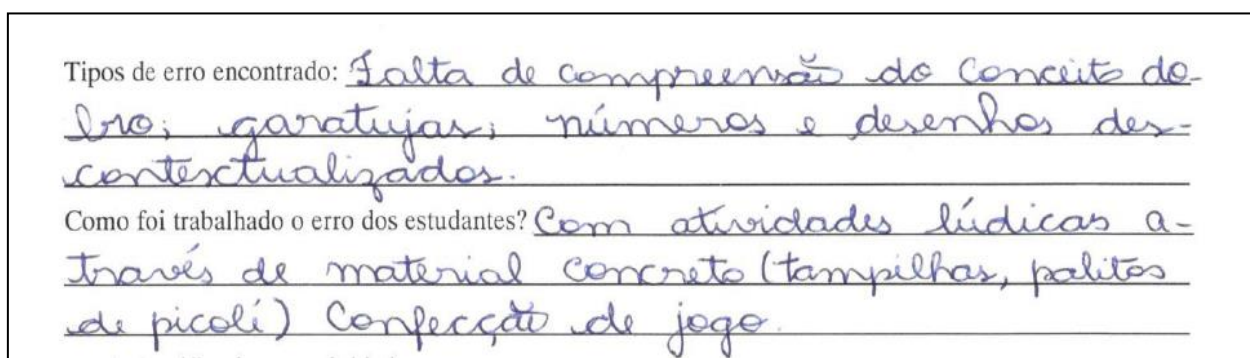 Tipos de erro encontrado: Falta de compreensão do conceito do-
bro; garatujas; números e desenhos des-
contextualizados.
Como foi trabalhado o erro dos estudantes? Com atividades lúdicas a-
través de material concreto (tampilhas, palitos
de picolí) Confecção de jogo.